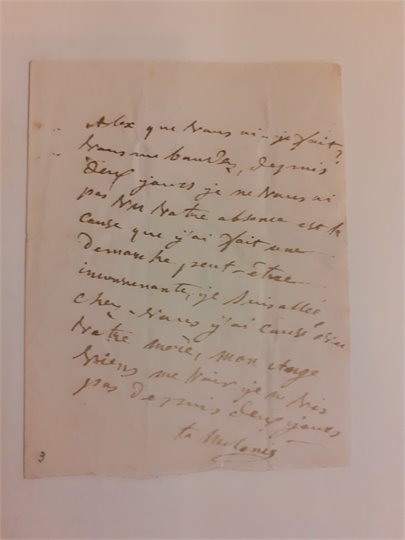 Alex que vous ai-je fait?
vous me boudez, depuis
deux jours je ne vous ai
pas vu votre absence est la
cause que j'ai fait une
demarche peut-être
inconvenante, je suis allée
chez-vous j'ai causé avec
votre mère, mon Ange
viens me voir je ne vis
pas depuis deux jours
ta
3